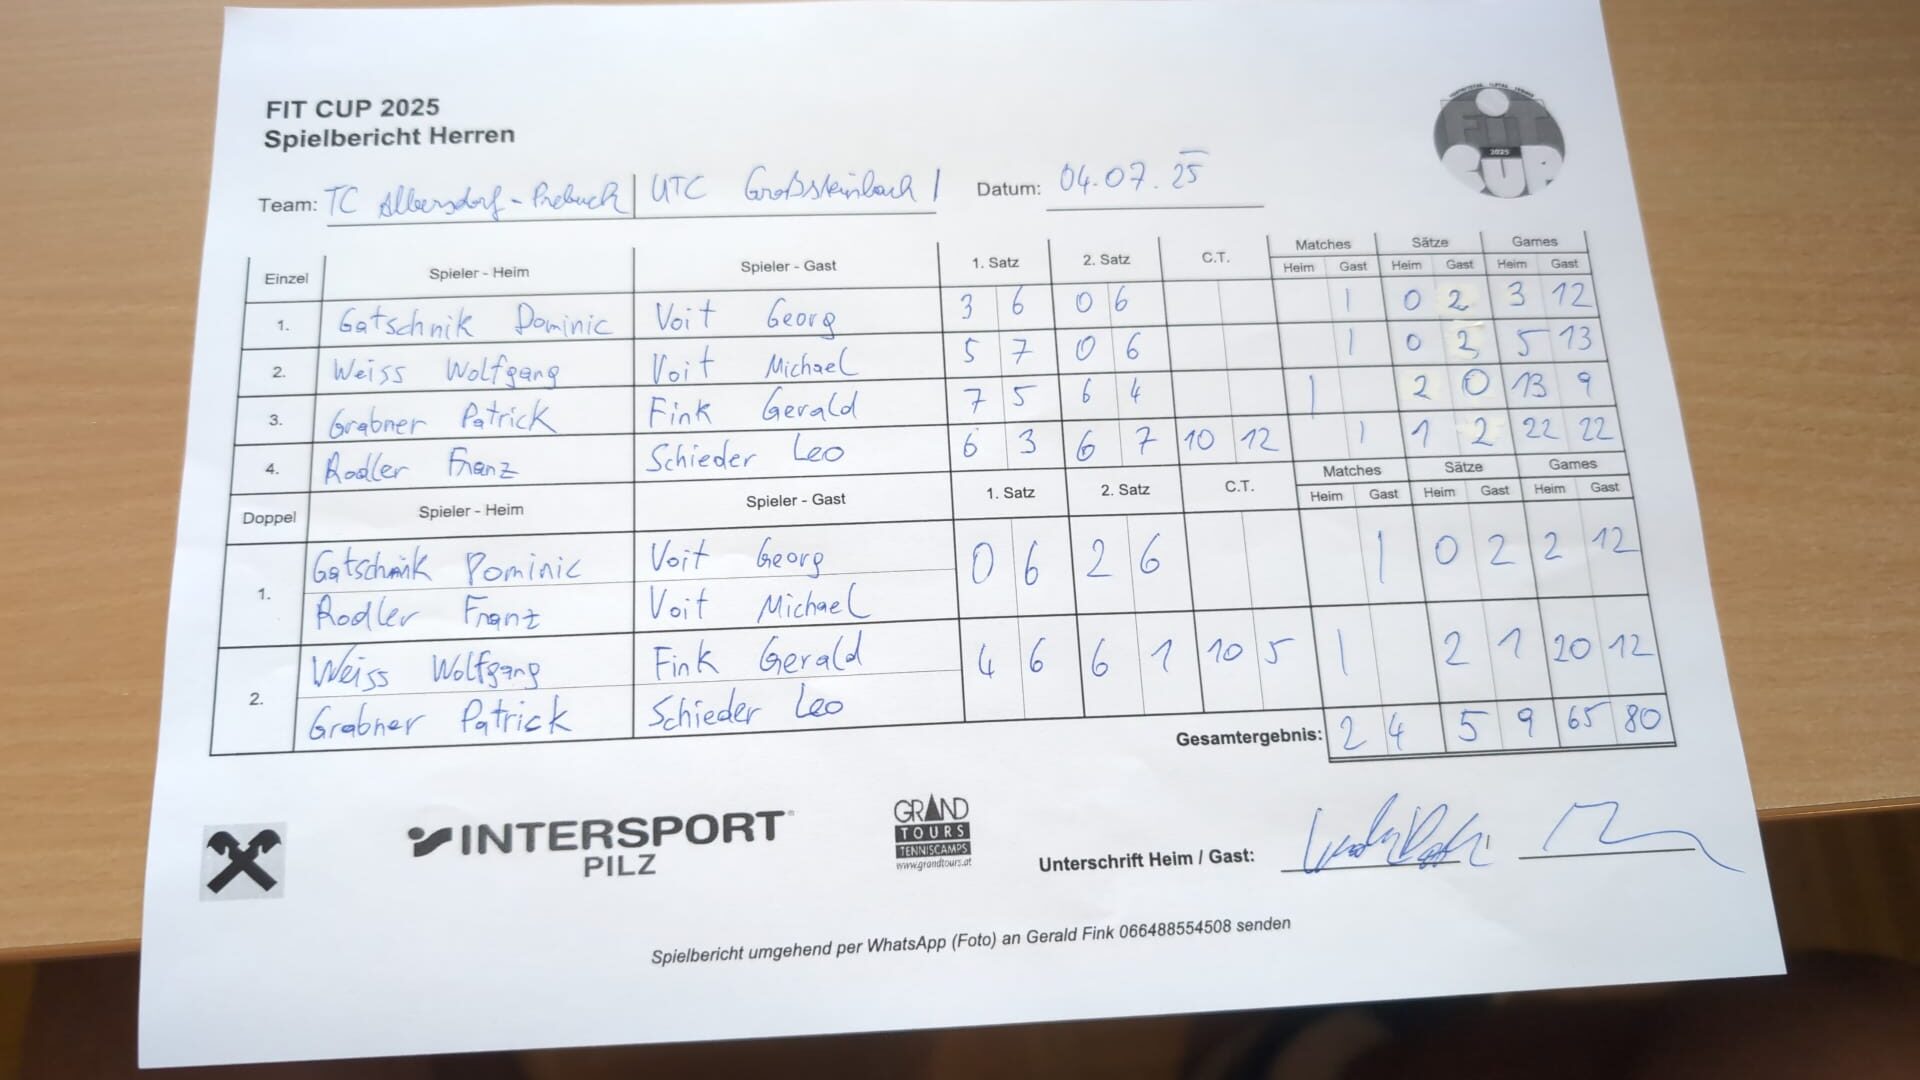 FIT CUP 2025
Spielbericht Herren
FIT CUP 2025
Team: TC Albersdorf-Prebuch | UTC Großsteinbach 1 Datum: 04.07.25
Einzel Spieler - Heim Spieler - Gast 1. Satz 2. Satz C.T. Matches Sätze Games
Heim Gast Heim Gast Heim Gast
1. Gatschnik Dominic Voit Georg 3 6 0 6 1 0 2 3 12
2. Weiss Wolfgang Voit Michael 5 7 0 6 1 0 2 5 13
3. Grabner Patrick Fink Gerald 7 5 6 4 1 2 0 13 9
4. Rodler Franz Schieder Leo 6 3 6 7 10 12 1 1 2 22 22
Doppel Spieler - Heim Spieler - Gast 1. Satz 2. Satz C.T. Matches Sätze Games
Heim Gast Heim Gast Heim Gast
1. Gatschnik Dominic Voit Georg 0 6 2 6 1 0 2 2 12
Rodler Franz Voit Michael
2. Weiss Wolfgang Fink Gerald 4 6 6 1 10 5 1 2 1 20 12
Grabner Patrick Schieder Leo
Gesamtergebnis: 2 4 5 9 65 80
INTERSPORT
PILZ
GRAND
TOURS
TENNISCAMPS
www.grandtours.at
Unterschrift Heim / Gast:
Spielbericht umgehend per WhatsApp (Foto) an Gerald Fink 066488554508 senden